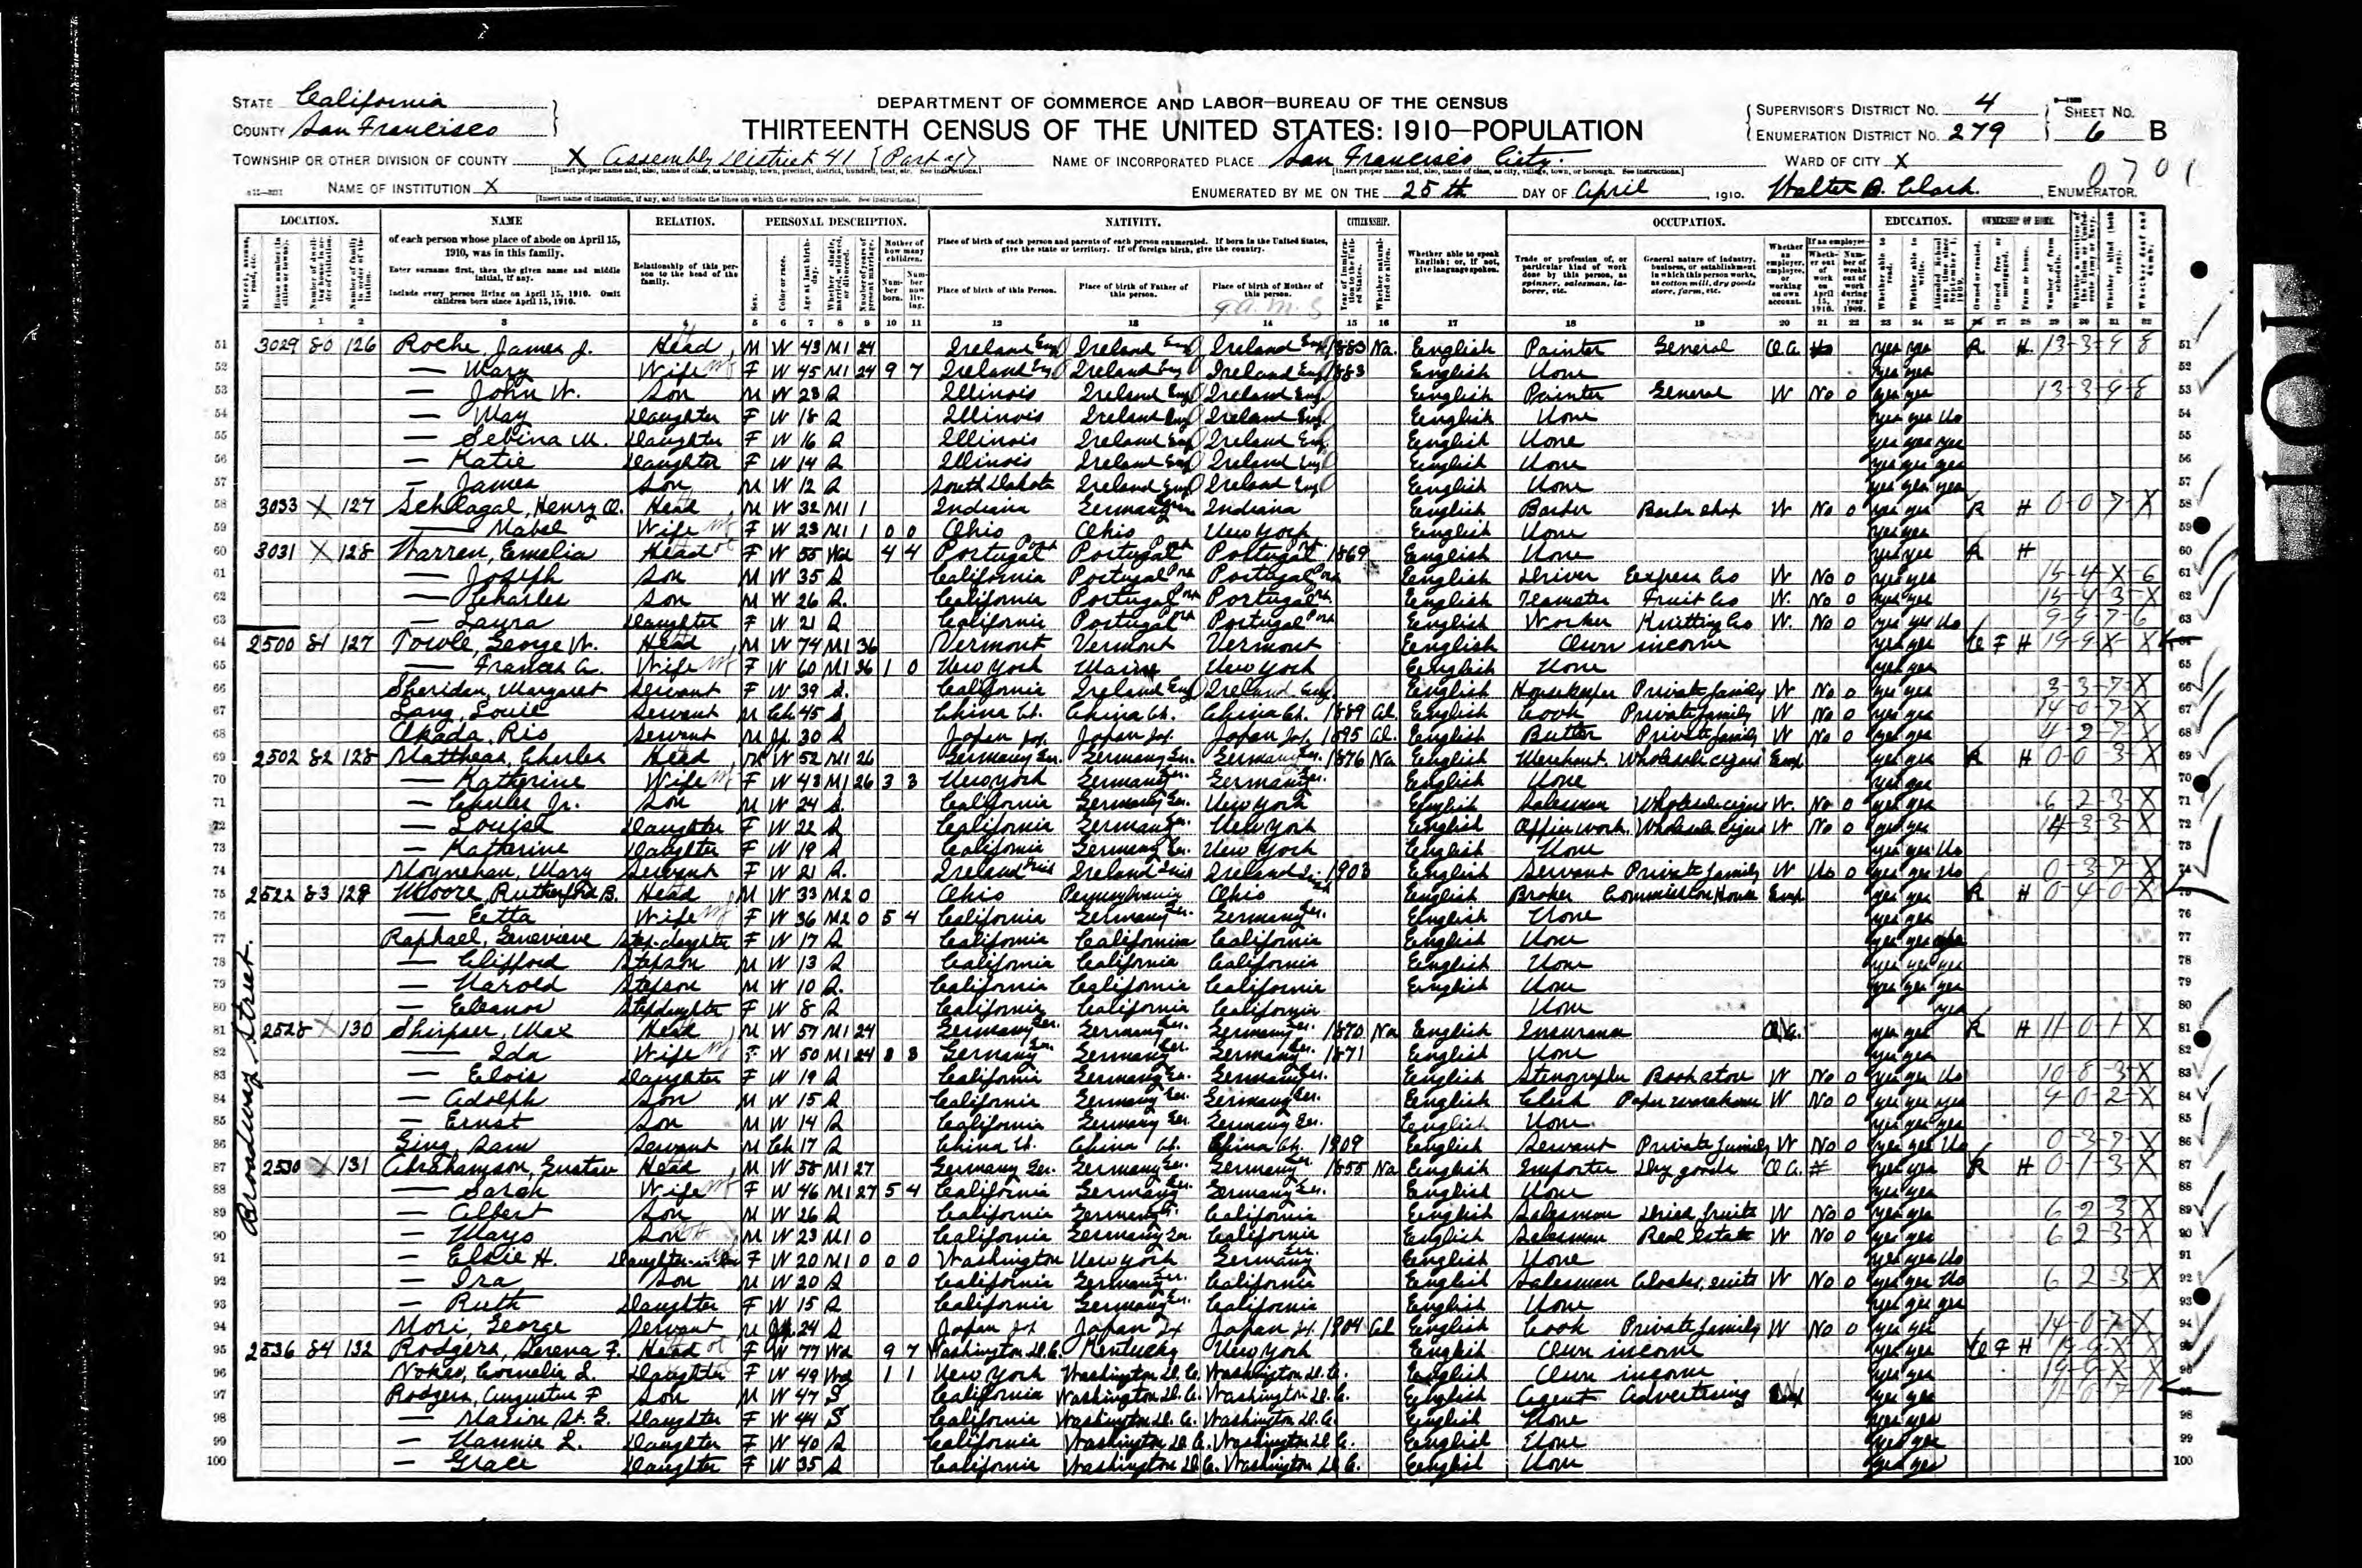 STATE California
COUNTY San Francisco
DEPARTMENT OF COMMERCE AND LABOR—BUREAU OF THE CENSUS
THIRTEENTH CENSUS OF THE UNITED STATES: 1910—POPULATION
SUPERVISOR'S DISTRICT No. 4
ENUMERATION DISTRICT No. 279
SHEET No. 6 B
TOWNSHIP OR OTHER DIVISION OF COUNTY X Assembly District 41 (Part of)
NAME OF INCORPORATED PLACE San Francisco City.
WARD OF CITY X
0701
NAME OF INSTITUTION X
ENUMERATED BY ME ON THE 25th DAY OF April, 1910. Walter B. Clark, ENUMERATOR.
LOCATION. NAME RELATION. PERSONAL DESCRIPTION. NATIVITY. CITIZENSHIP. OCCUPATION. EDUCATION. OWNERSHIP OF HOME.
of each person whose place of abode on April 15, 1910, was in this family.
Enter surname first, then the given name and middle initial, if any.
Include every person living on April 15, 1910. Omit children born since April 15, 1910.
Relationship of this person to the head of the family.
Place of birth of each person and parents of each person enumerated. If born in the United States, give the state or territory. If of foreign birth, give the country.
Place of birth of this Person. Place of birth of Father of this person. Place of birth of Mother of this person.
Whether able to speak English; or, if not, give language spoken.
Trade or profession of, or particular kind of work done by this person, as spinner, salesman, laborer, etc.
General nature of industry, business, or establishment in which this person works, as cotton mill, dry goods store, farm, etc.
1 2 3 4 5 6 7 8 9 10 11 12 13 14 15 16 17 18 19 20 21 22 23 24 25 26 27 28 29 30 31 32
Broadway Street.
51 3029 80 126 Roche, James J. Head M W 43 M1 24 Ireland Eng Ireland Eng Ireland Eng 1883 Na English Painter General O.A. yes yes R H 51
52 — Mary Wife F W 45 M1 24 9 7 Ireland Eng Ireland Eng Ireland Eng 1883 English None yes yes 52
53 — John W. Son M W 23 S Illinois Ireland Eng Ireland Eng English Painter General W No 0 yes yes 53
54 — May Daughter F W 18 S Illinois Ireland Eng Ireland Eng English None yes yes No 54
55 — Sebina M. Daughter F W 16 S Illinois Ireland Eng Ireland Eng English None yes yes yes 55
56 — Katie Daughter F W 14 S Illinois Ireland Eng Ireland Eng English None yes yes yes 56
57 — James Son M W 12 S South Dakota Ireland Eng Ireland Eng English None yes yes yes 57
58 3033 X 127 Schlagal, Henry O. Head M W 32 M1 1 Indiana Germany Ger Indiana English Barber Barber shop W No 0 yes yes R H 0 0 7 X 58
59 — Mabel Wife F W 23 M1 1 0 0 Ohio Ohio New York English None yes yes 59
60 3031 X 128 Warren, Emelia Head F W 55 Wd 4 4 Portugal Port Portugal Port Portugal Port 1869 English None yes yes R H 60
61 — Joseph Son M W 35 S California Portugal Port Portugal Port English Driver Express Co W No 0 yes yes 15 4 X 6 61
62 — Charles Son M W 26 S. California Portugal Port Portugal Port English Teamster Fruit Co W. No 0 yes yes 15 4 3 X 62
63 — Laura Daughter F W 21 S California Portugal Port Portugal Port English Worker Knitting Co W. No 0 yes yes No 9 9 7 6 63
64 2500 81 127 Towle, George W. Head M W 74 M1 36 Vermont Vermont Vermont English Own income yes yes O F H 19 9 X X
65 — Frances A. Wife F W 60 M1 36 1 0 New York Maine New York English None yes yes 65
66 Sheridan, Margaret Servant F W 39 S. California Ireland Eng Ireland Eng. English Housekeeper Private family W No 0 yes yes 3 3 7 X 66
67 Lang, Louie Servant M Ch 45 S China Ch. China Ch. China Ch. 1889 Al. English Cook Private family W No 0 yes yes 14 0 7 X 67
68 Okada, Rio Servant M Jp 30 S Japan Jap. Japan Jap. Japan Jap. 1895 Al. English Butler Private family W No 0 yes yes 4 9 7 X 68
69 2502 82 128 Mattheas, Charles Head M W 52 M1 26 Germany Ger. Germany Ger. Germany Ger. 1876 Na English Merchant. Wholesale cigars Emp yes yes R H 0 0 3 X 69
70 — Katherine Wife F W 43 M1 26 3 3 New York Germany Ger. Germany Ger. English None yes yes 70
71 — Charles Jr. Son M W 24 S. California Germany Ger. New York English Salesman Wholesale cigars W. No 0 yes yes 6 2 3 X 71
72 — Louise Daughter F W 22 S California Germany Ger. New York English Office work. Wholesale cigars W No 0 yes yes 14 3 3 X 72
73 — Katherine Daughter F W 19 S California Germany Ger. New York English None yes yes No 73
74 Moynehan, Mary Servant F W 21 S. Ireland Iris Ireland Iris Ireland 1903 English Servant Private family W No 0 yes yes No 0 3 7 X 74
75 2522 83 129 Moore, Rutherford B. Head M W 33 M2 0 Ohio Pennsylvania Ohio English Broker Commission House Emp yes yes R H 0 4 0 X 75
76 — Etta Wife F W 36 M2 0 5 4 California Germany Ger. Germany Ger. English None yes yes 76
77 Raphael, Genevieve Step-daughter F W 17 S California California California English None yes yes yes 77
78 — Clifford Stepson M W 13 S California California California English None yes yes yes 78
79 — Harold Stepson M W 10 S. California California California English None yes yes yes 79
80 — Eleanor Stepdaughter F W 8 S California California California None yes 80
81 2528 X 130 Shirpser, Max Head M W 57 M1 24 Germany Ger. Germany Ger. Germany Ger. 1870 Na English Insurance O.A. yes yes R H 11 0 1 X 81
82 — Ida Wife F W 50 M1 24 8 8 Germany Ger. Germany Ger. Germany Ger. 1871 English None yes yes 82
83 — Elois Daughter F W 19 S California Germany Ger. Germany Ger. English Stenographer Book store W No 0 yes yes No 10 8 3 X 83
84 — Adolph Son M W 15 S California Germany Ger. Germany Ger. English Clerk Paper warehouse W No 0 yes yes yes 9 0 2 X 84
85 — Ernst Son M W 14 S California Germany Ger. Germany Ger. English None. yes yes yes 85
86 Ging, Sam Servant M Ch 17 S China Ch. China Ch. China Ch. 1909 English Servant Private family W No 0 yes yes No 0 3 7 X 86
87 2530 X 131 Abrahamson, Gustav Head M W 58 M1 27 Germany Ger. Germany Ger. Germany Ger 1855 Na English Importer Dry goods O.A. yes yes R H 0 1 3 X 87
88 — Sarah Wife F W 46 M1 27 5 4 California Germany Ger. Germany Ger. English None yes yes 88
89 — Albert Son M W 26 S California Germany California English Salesman Dried fruits W No 0 yes yes 6 2 3 X 89
90 — Mayo Son M W 23 M1 0 California Germany Ger California English Salesman Real estate W No 0 yes yes 6 2 3 X 90
91 — Elsie H. Daughter-in-law F W 20 M1 0 0 0 Washington New York Germany Ger. English None yes yes No 91
92 — Ira Son M W 20 S California Germany Ger. California English Salesman Cloaks, suits W No 0 yes yes No 6 2 3 X 92
93 — Ruth Daughter F W 15 S California Germany Ger. California English None yes yes yes 93
94 Mori, George Servant M Jp. 24 S Japan Japan Japan 1904 Al English Cook Private family W No 0 yes yes 14 0 7 X 94
95 2536 84 132 Rodgers, Serena F. Head F W 77 Wd 9 7 Washington D.C. Kentucky New York English Own income yes yes O F H 19 9 X X 95
96 Nokes, Cornelia L. Daughter F W 49 Wd 1 1 New York Washington D.C. Washington D.C. English Own income yes yes 19 9 X X 96
97 Rodgers, Augustus F Son M W 47 S California Washington D.C. Washington D.C. English Agent Advertising yes yes
98 — Marion St. G. Daughter F W 44 S California Washington D.C. Washington D.C. English None yes yes 98
99 — Nannie L. Daughter F W 40 S California Washington D.C. Washington D.C. English None yes yes 99
100 — Grace Daughter F W 35 S California Washington D.C. Washington D.C. English None yes yes 100